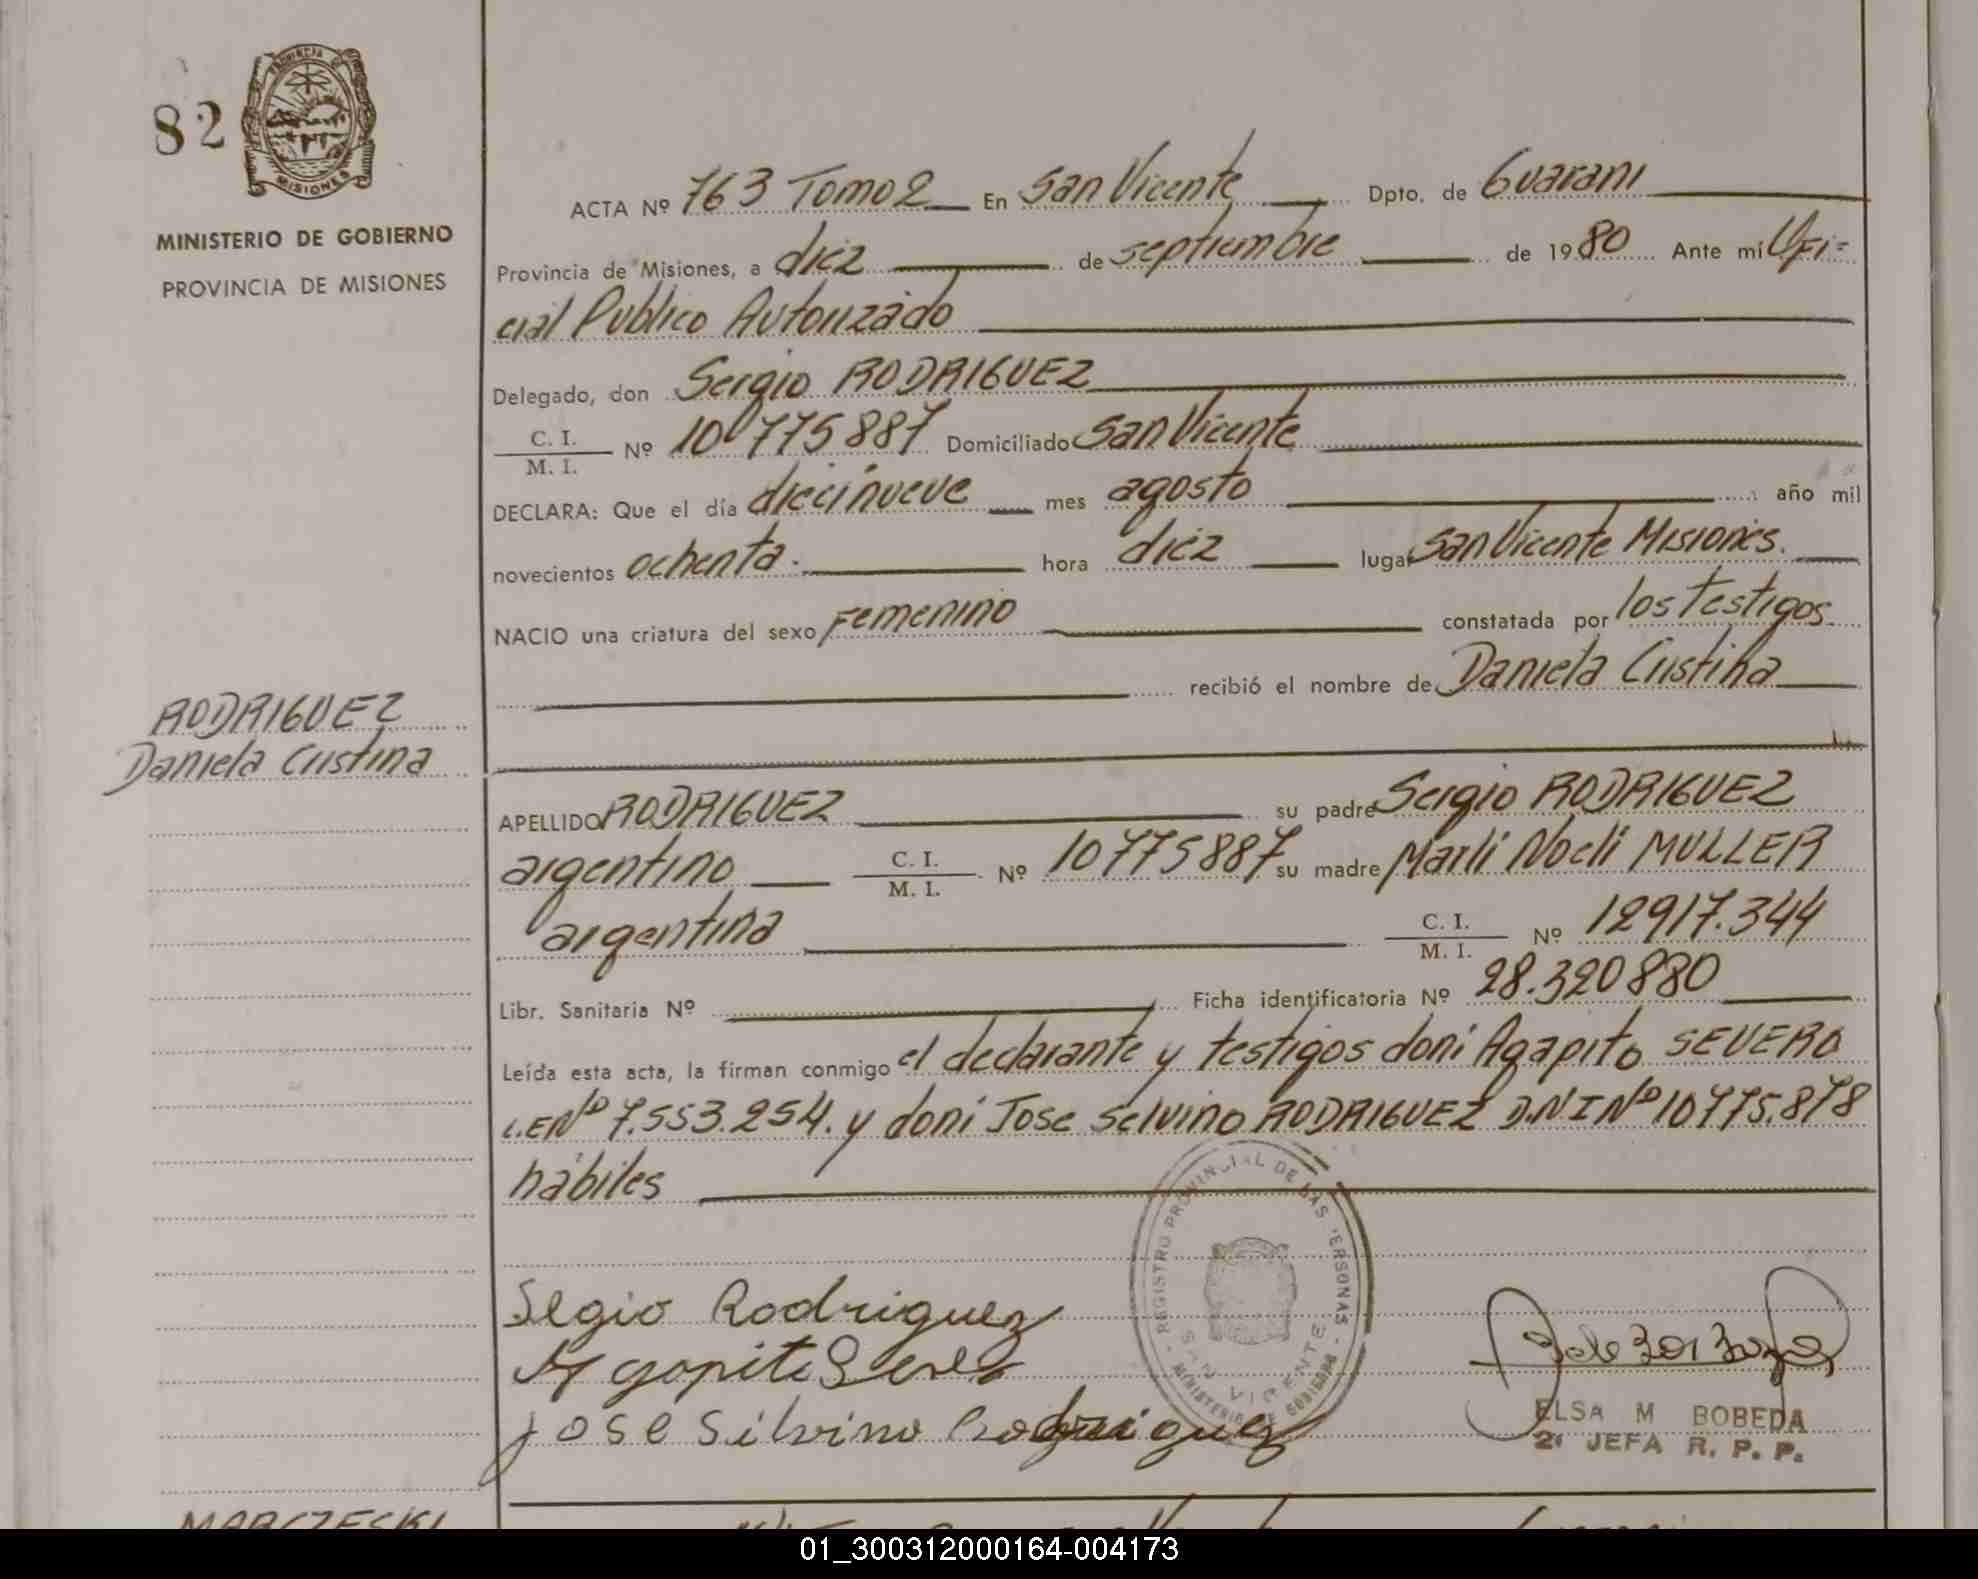 82
PROVINCIA
MISIONES
MINISTERIO DE GOBIERNO
PROVINCIA DE MISIONES
ACTA Nº 763 Tomo 2 En San Vicente Dpto. de Guarani
Provincia de Misiones, a diez de septiembre de 1980 Ante mí Ofi=
cial Publico Autorizado
Delegado, don Sergio RODRIGUEZ
C. I.
M. I. Nº 10775887 Domiciliado San Vicente
DECLARA: Que el día diecinueve mes agosto año mil
novecientos ochenta. hora diez lugar San Vicente Misiones.
NACIO una criatura del sexo Femenino constatada por los testigos
recibió el nombre de Daniela Cristina
RODRIGUEZ
Daniela Cristina
APELLIDO RODRIGUEZ su padre Sergio RODRIGUEZ
argentino C. I.
M. I. Nº 10775887 su madre Marli Noeli MULLER
argentina C. I.
M. I. Nº 12917.344
Libr. Sanitaria Nº Ficha identificatoria Nº 28.320880
Leída esta acta, la firman conmigo el declarante y testigos doni Agapito SEVERO
L.E Nº 7.553.254. y doni Jose Selvino RODRIGUEZ D.N.I Nº 10775.878
hábiles
REGISTRO PROVINCIAL DE LAS PERSONAS
SAN VICENTE
MINISTERIO DE GOBIERNO
Segio Rodriguez
Agapito
Jose Silvino Rodriguez
ELSA M BOBEDA
2ª JEFA R. P. P.
MARCZESKI
01_300312000164-004173